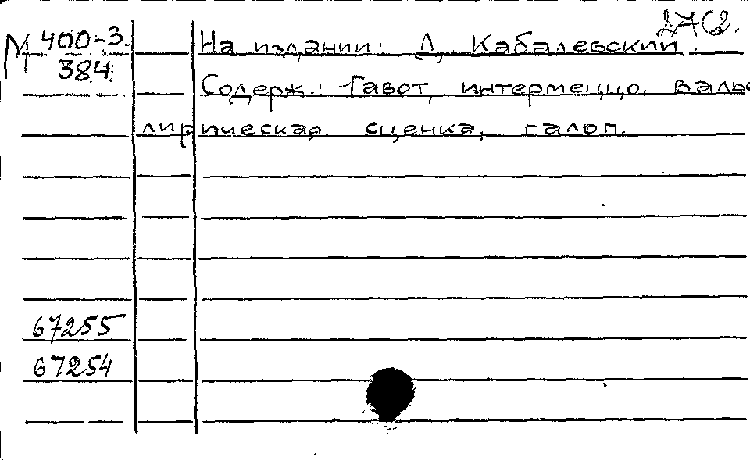 М 400-3
384
На издании: Д. Кабалевский.
Содерж.: Гавот, интермеццо, вальс
лирическая сценка, галоп.
67255
67254